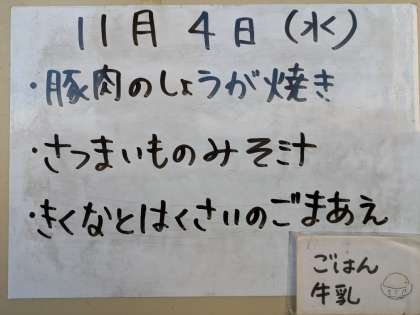 11月 4日(水)
・豚肉のしょうが焼き
・さつまいものみそ汁
・きくなとはくさいのごまあえ
ごはん
牛乳